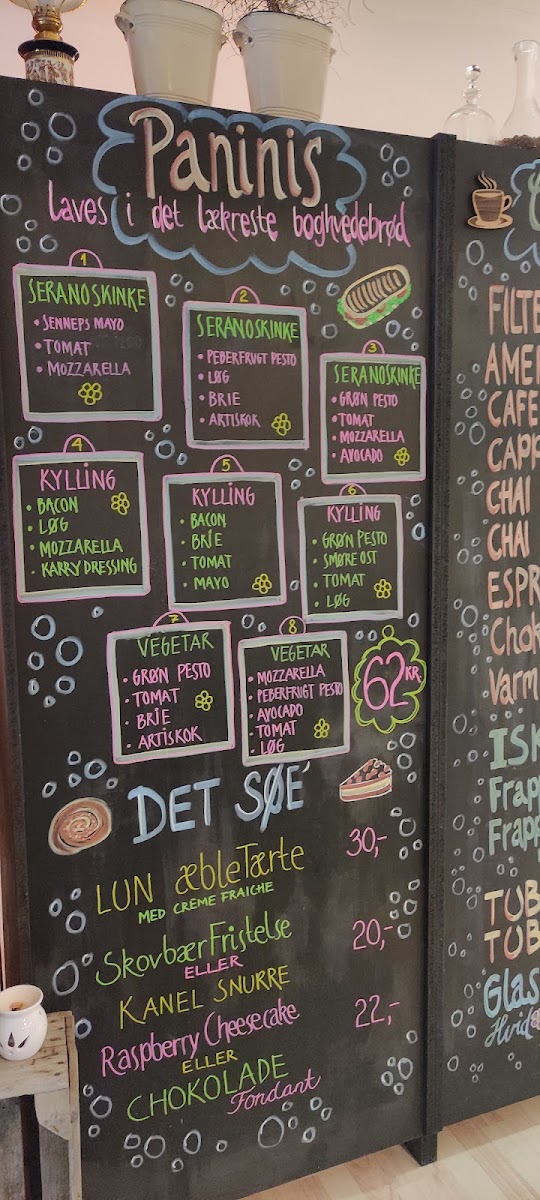 Paninis
Laves i det lækreste boghvedebrød
1
SERANOSKINKE
• SENNEPS MAYO
• TOMAT
• MOZZARELLA
2
SERANOSKINKE
• PEBERFRUGT PESTO
• LØG
• BRIE
• ARTISKOK
3
SERANOSKINKE
• GRØN PESTO
• TOMAT
• MOZZARELLA
• AVOCADO
4
KYLLING
• BACON
• LØG
• MOZZARELLA
• KARRY DRESSING
5
KYLLING
• BACON
• BRIE
• TOMAT
• MAYO
6
KYLLING
• GRØN PESTO
• SMØREOST
• TOMAT
• LØG
7
VEGETAR
• GRØN PESTO
• TOMAT
• BRIE
• ARTISKOK
8
VEGETAR
• MOZZARELLA
• PEBERFRUGT PESTO
• AVOCADO
• TOMAT
• LØG
62 KR.
DET SØE
LUN æbleTærte 30,-
MED CREME FRAICHE
SkovbærFristelse 20,-
ELLER
KANEL SNURRE
Raspberry Cheesecake 22,-
ELLER
CHOKOLADE
Fondant
FILTE
AMER
CAFE
CAPP
CHAI
CHAI
ESPR
Chok
Varm
ISK
Frapp
Frapp
TUB
TUB
Glas
Hvid